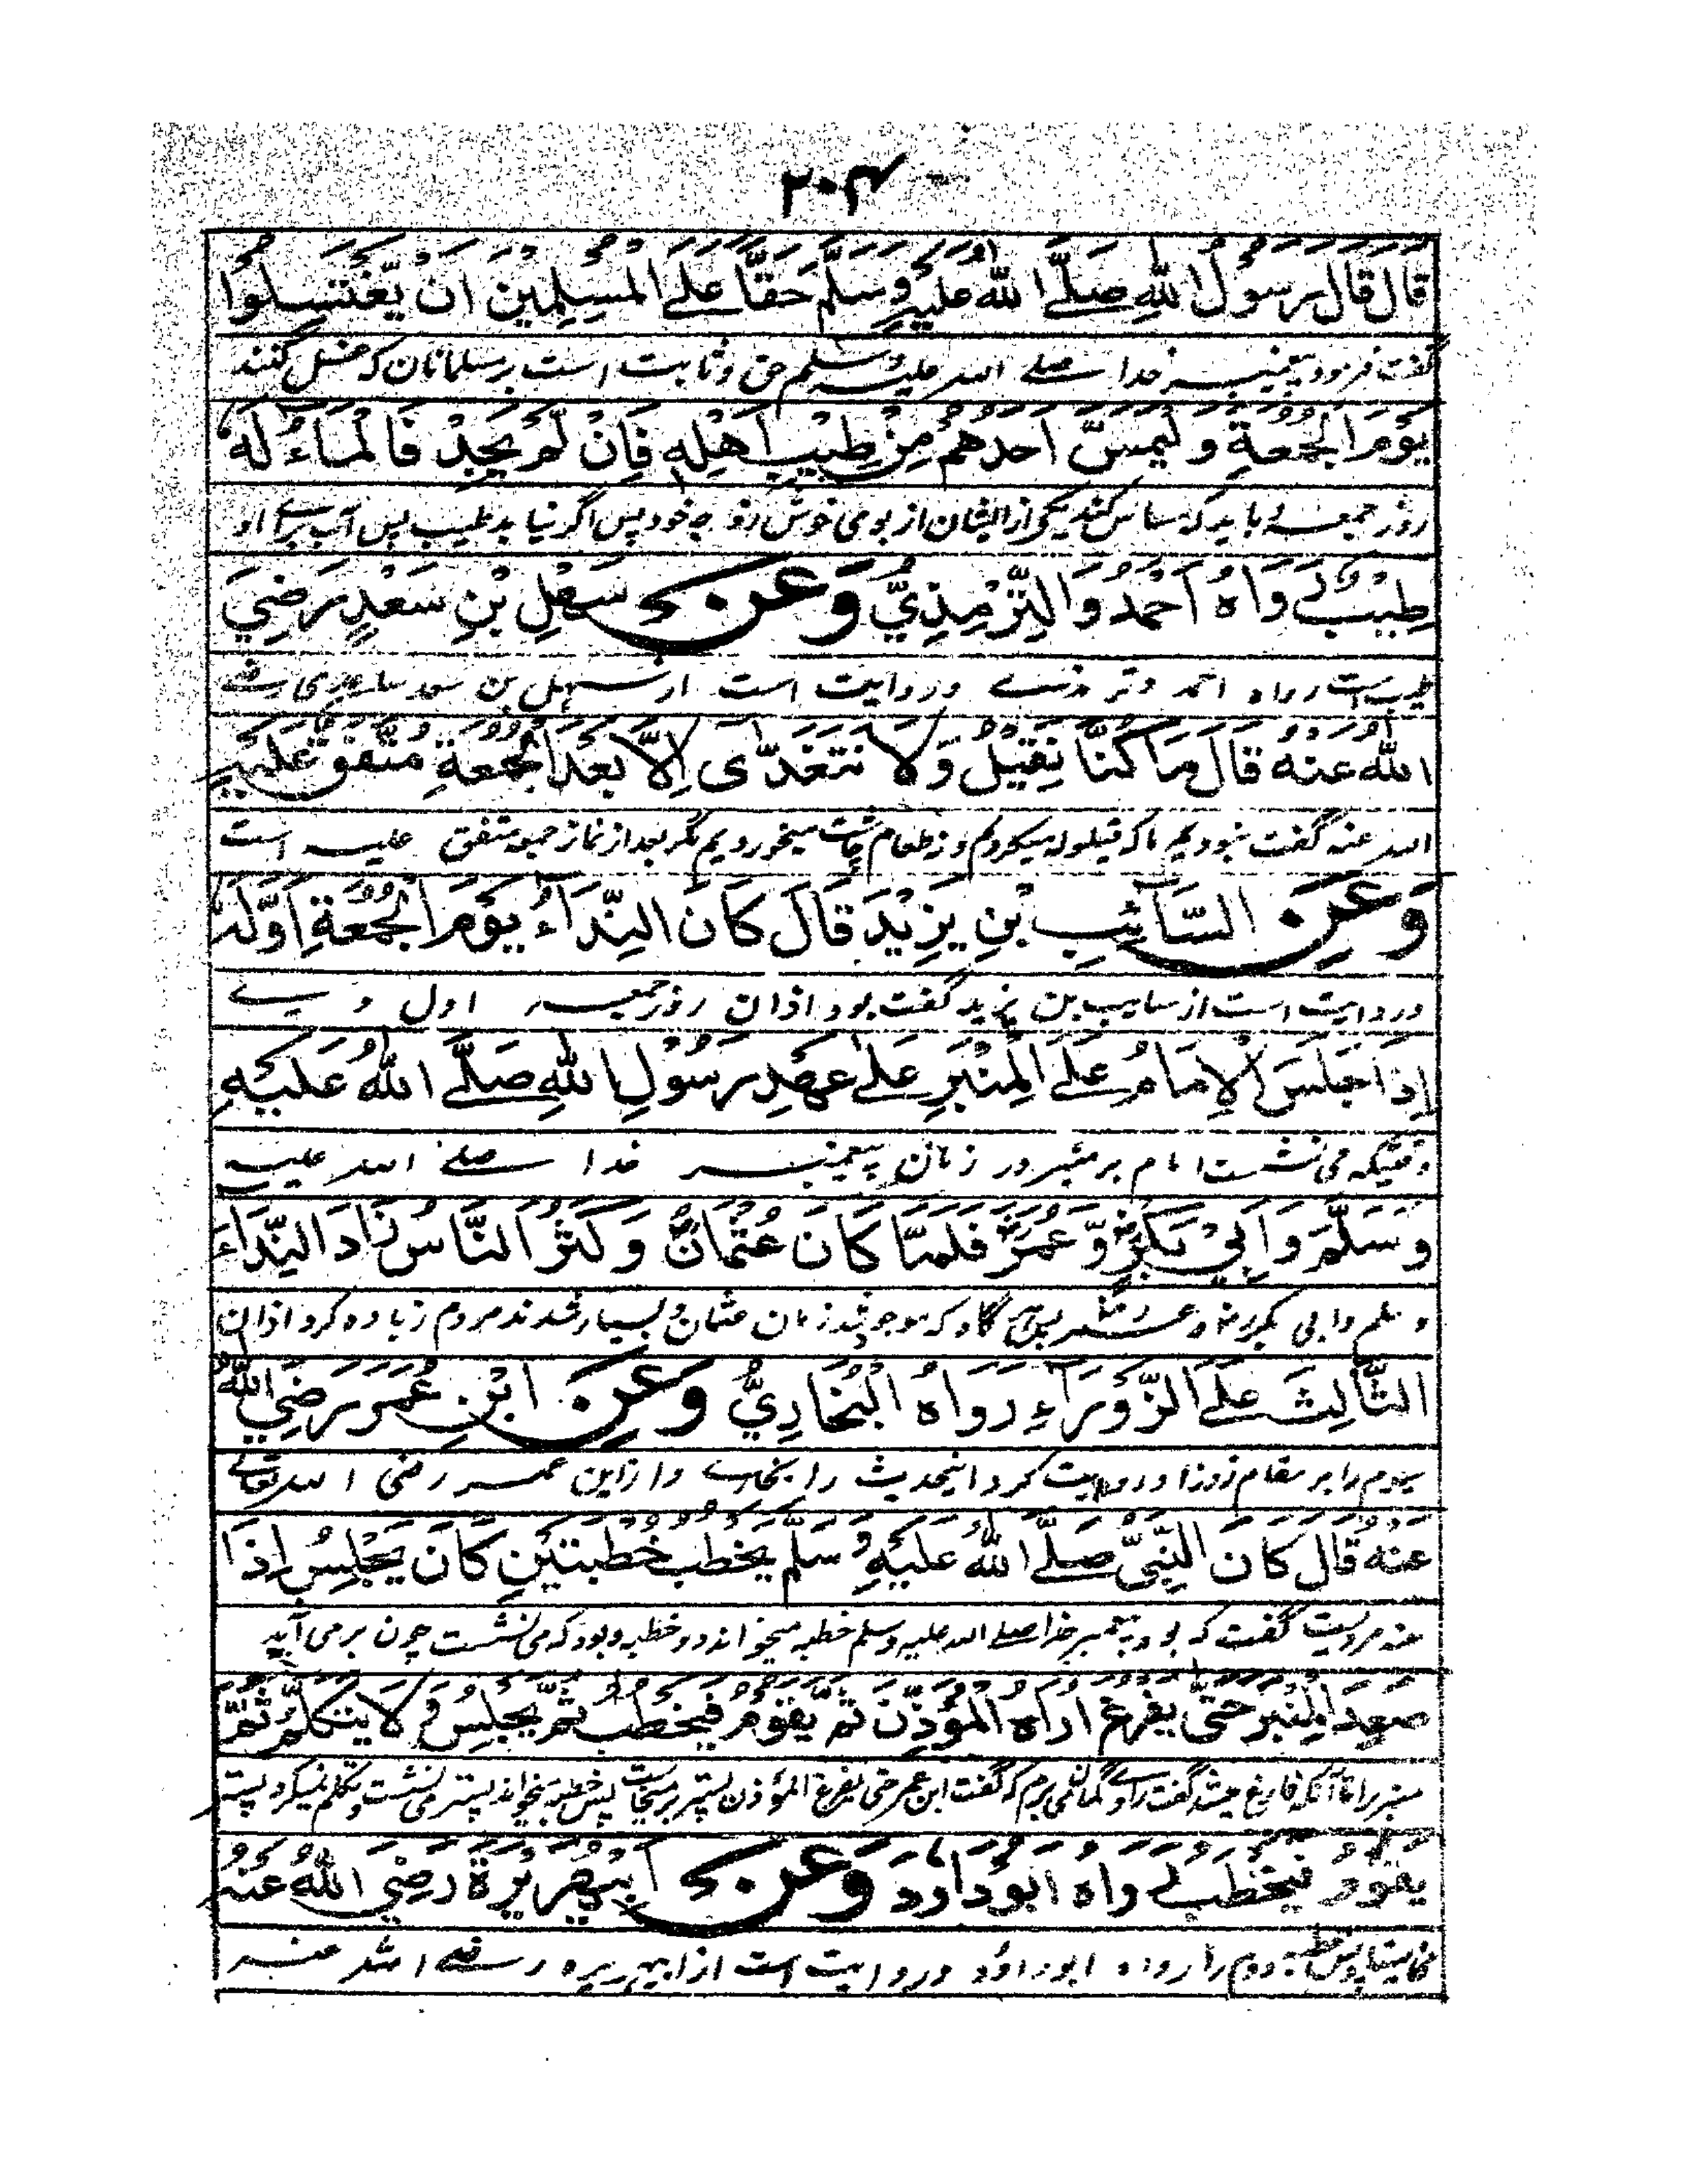 ۲۰۴
قَالَ قَالَ رَسُوْلُ اللّٰهِ صَلَّے اللّٰهُ عَلَيْهِ وَسَلَّمَ حَقًّا عَلَے الْمُسْلِمِيْنَ اَنْ يَّغْتَسِلُوْا
گفت فرمود پیغمبر خدا صلے اللہ علیہ وسلم حق و ثابت است بر مسلمانان که غسل کنند
يَوْمَ الْجُمُعَةِ وَلْيَمَسَّ اَحَدُهُمْ مِنْ طِيْبِ اَهْلِهٖ فَاِنْ لَّمْ يَجِدْ فَالْمَاءُ لَهٗ
روز جمعه و باید که مساس کند یکی از ایشان از بوی خوش زوجه خود پس اگر نیابد طیب پس آب برائے او
طِيْبٌ رَوَاهُ اَحْمَدُ وَالتِّرْمِذِيُّ وَعَنْ سَهْلِ بْنِ سَعْدٍ رَضِيَ
طیب است رواه احمد و ترمذے و روایت است از سہل بن سعد ساعدی رضے
اللّٰهُ عَنْهُ قَالَ مَا كُنَّا نَقِيْلُ وَلَا نَتَغَدّٰى اِلَّا بَعْدَ الْجُمُعَةِ مُتَّفَقٌ عَلَيْهِ
اللہ عنہ گفت نبودیم ما که قیلولہ میکردیم و نہ طعام چاشت میخوردیم مگر بعد از نماز جمعہ متفق علیہ است
وَعَنِ السَّآئِبِ بْنِ يَزِيْدَ قَالَ كَانَ النِّدَآءُ يَوْمَ الْجُمُعَةِ اَوَّلُهٗ
و روایت است از سایب بن یزید گفت بود اذان روز جمعہ اول وے
اِذَا جَلَسَ الْاِمَامُ عَلَے الْمِنْبَرِ عَلٰے عَهْدِ رَسُوْلِ اللّٰهِ صَلَّے اللّٰهُ عَلَيْهِ
وقتیکہ می نشست امام بر منبر در زمان پیغمبر خدا صلے اللہ علیہ
وَسَلَّمَ وَاَبِيْ بَكْرٍ وَّعُمَرَ فَلَمَّا كَانَ عُثْمَانُ وَكَثُرَ النَّاسُ زَادَ النِّدَآءَ
و سلم و ابی بکر رض و عمر رض پس آنگاه که موجود شد زمان عثمان و بسیار شدند مردم زیاده کرد اذان
الثَّالِثَ عَلَے الزَّوْرَآءِ رَوَاهُ الْبُخَارِيُّ وَعَنِ ابْنِ عُمَرَ رَضِيَ اللّٰهُ
سیوم را بر مقام زورا و روایت کرد اینحدیث را بخارے و از ابن عمر رضی اللہ تعالے
عَنْهُ قَالَ كَانَ النَّبِيُّ صَلَّے اللّٰهُ عَلَيْهِ وَسَلَّمَ يَخْطُبُ خُطْبَتَيْنِ كَانَ يَجْلِسُ اِذَا
عنہ مرویست گفت کہ بود پیغمبر خدا صلے اللہ علیہ وسلم خطبہ میخواند دو خطبہ و بود کہ می نشست چون بر می آید
صَعِدَ الْمِنْبَرَ حَتّٰى يَفْرُغَ اُرَاهُ الْمُؤَذِّنَ ثُمَّ يَقُوْمُ فَيَخْطُبُ ثُمَّ يَجْلِسُ وَلَا يَتَكَلَّمُ ثُمَّ
منبر را تا آنکہ فارغ میشد گفت راوے گمان می برم کہ گفت ابن عمر حتی یفرغ المؤذن پستر بر میخاست پس خطبہ میخواند پستر می نشست و تکلم نمیکرد پستر
يَقُوْمُ فَيَخْطُبُ رَوَاهُ اَبُوْ دَاوٗدَ وَعَنْ اَبِيْ هُرَيْرَةَ رَضِيَ اللّٰهُ عَنْهُ
خطبہ دوم را رواه ابوداؤد و روایت است از ابیہریرہ رضے اللہ عنہ